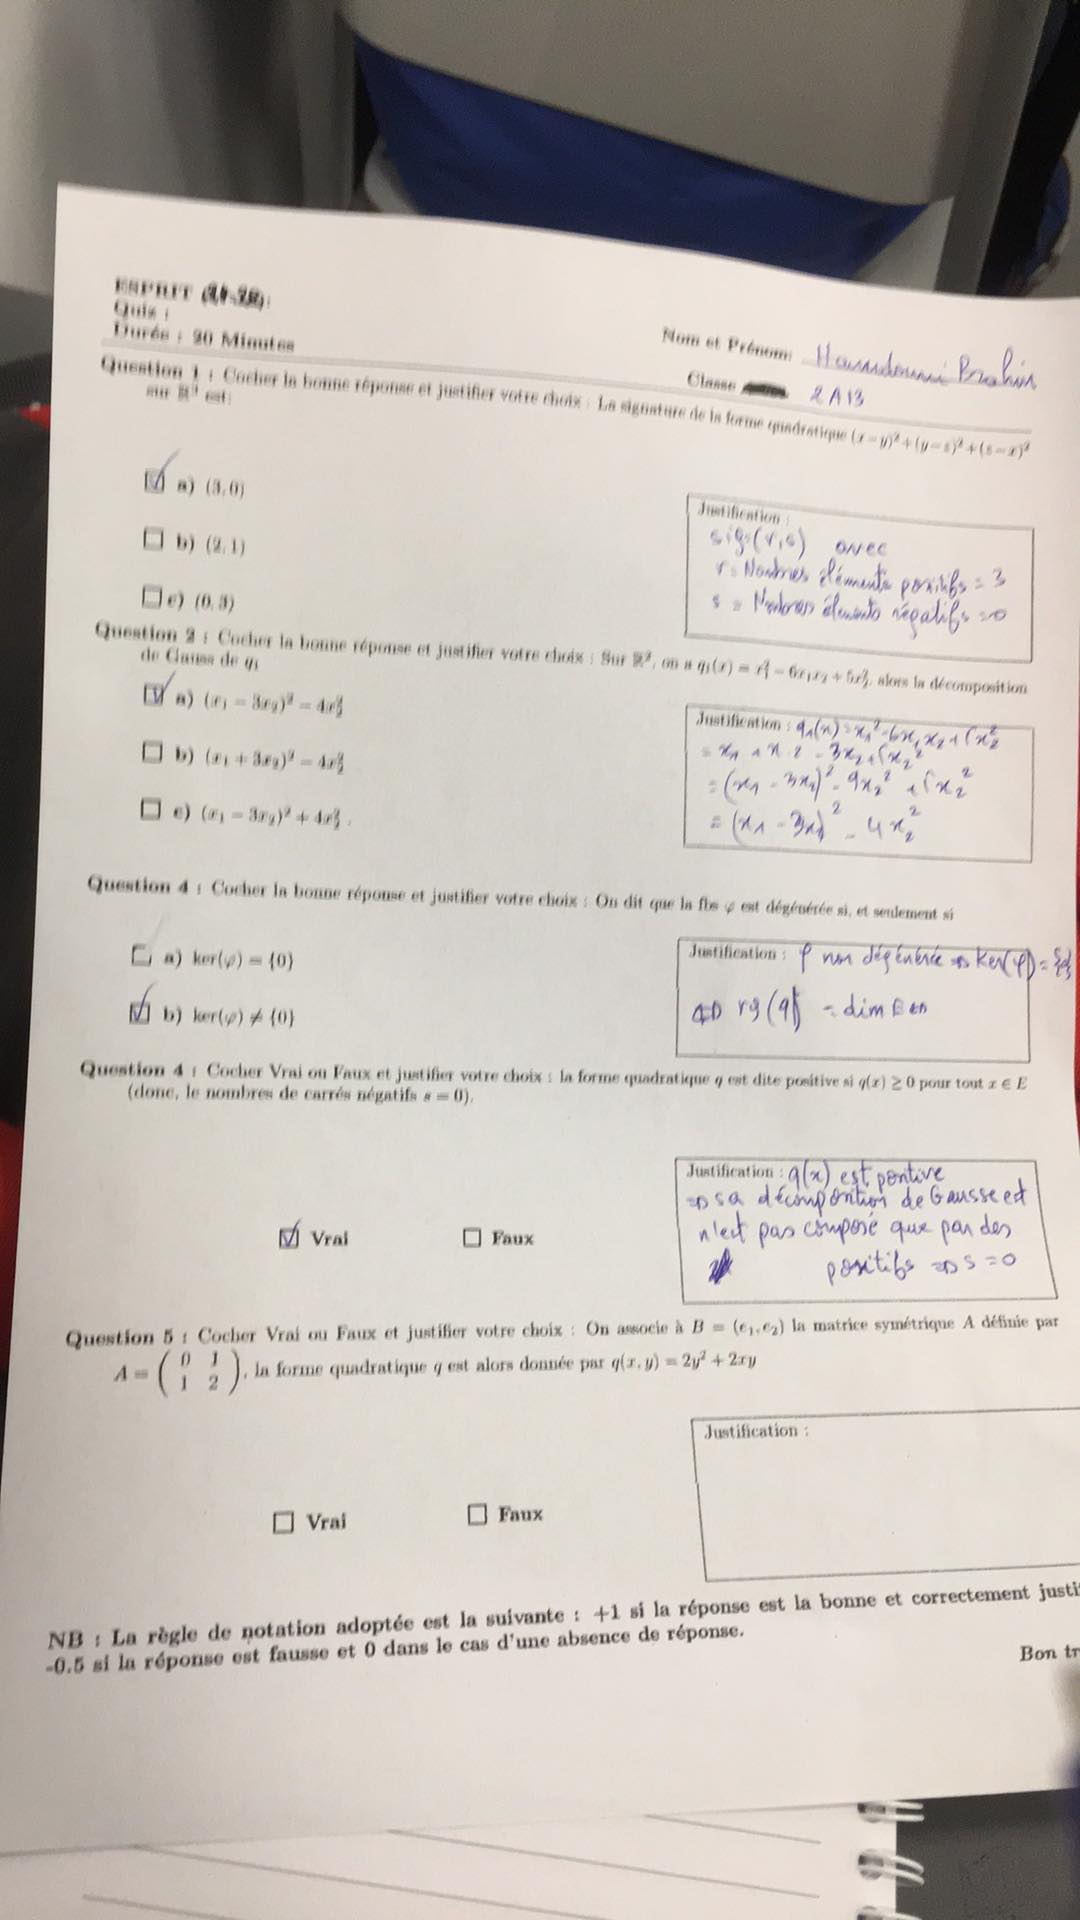 ESPRIT
Quiz :
Durée : 20 Minutes
Nom et Prénom: Hamdouni Brahim
Classe 2A13
Question 1 : Cocher la bonne réponse et justifier votre choix : La signature de la forme quadratique (x − y)² + (y − z)² + (z − x)²
sur ℝ³ est:
☑ a) (3, 0)
☐ b) (2, 1)
☐ c) (0, 3)
Justification :
sig=(r,s) avec
r = Nombres éléments positifs = 3
s = Nombres éléments négatifs = 0
Question 2 : Cocher la bonne réponse et justifier votre choix : Sur ℝ², on a q₁(x) = x₁² − 6x₁x₂ + 5x₂², alors la décomposition
de Gauss de q₁
☑ a) (x₁ − 3x₂)² − 4x₂²
☐ b) (x₁ + 3x₂)² − 4x₂²
☐ c) (x₁ − 3x₂)² + 4x₂².
Justification : q₁(x) = x₁² - 6x₁x₂ + 5x₂²
- 3x₂ + 5x₂²
= (x₁ - 3x₂)² - 9x₂² + 5x₂²
= (x₁ - 3x₂)² - 4x₂²
Question 4 : Cocher la bonne réponse et justifier votre choix : On dit que la fbs φ est dégénérée si, et seulement si
☐ a) ker(φ) = {0}
☑ b) ker(φ) ≠ {0}
Justification : φ non dégénérée ⇒ Ker(φ) = {0}
⇔ rg(q) = dim E
Question 4 : Cocher Vrai ou Faux et justifier votre choix : la forme quadratique q est dite positive si q(x) ≥ 0 pour tout x ∈ E
(donc, le nombres de carrés négatifs s = 0).
☑ Vrai ☐ Faux
Justification : q(x) est positive
⇒ sa décomposition de Gausse est
n'est pas composé que par des
positifs ⇒ s = 0
Question 5 : Cocher Vrai ou Faux et justifier votre choix : On associe à B = (e₁, e₂) la matrice symétrique A définie par
A = ( 0 1
1 2 ), la forme quadratique q est alors donnée par q(x, y) = 2y² + 2xy
Justification :
☐ Vrai ☐ Faux
NB : La règle de notation adoptée est la suivante : +1 si la réponse est la bonne et correctement justi
-0.5 si la réponse est fausse et 0 dans le cas d'une absence de réponse.
Bon tr